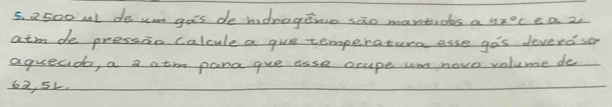 5. 2500 ml de um gás de hidrogênio são mantidos a 47°C e a 2
atm de pressão. Calcule a que temperatura esse gás deverá ser
aquecido, a 2 atm para que esse ocupe um novo volume de
62,5L.